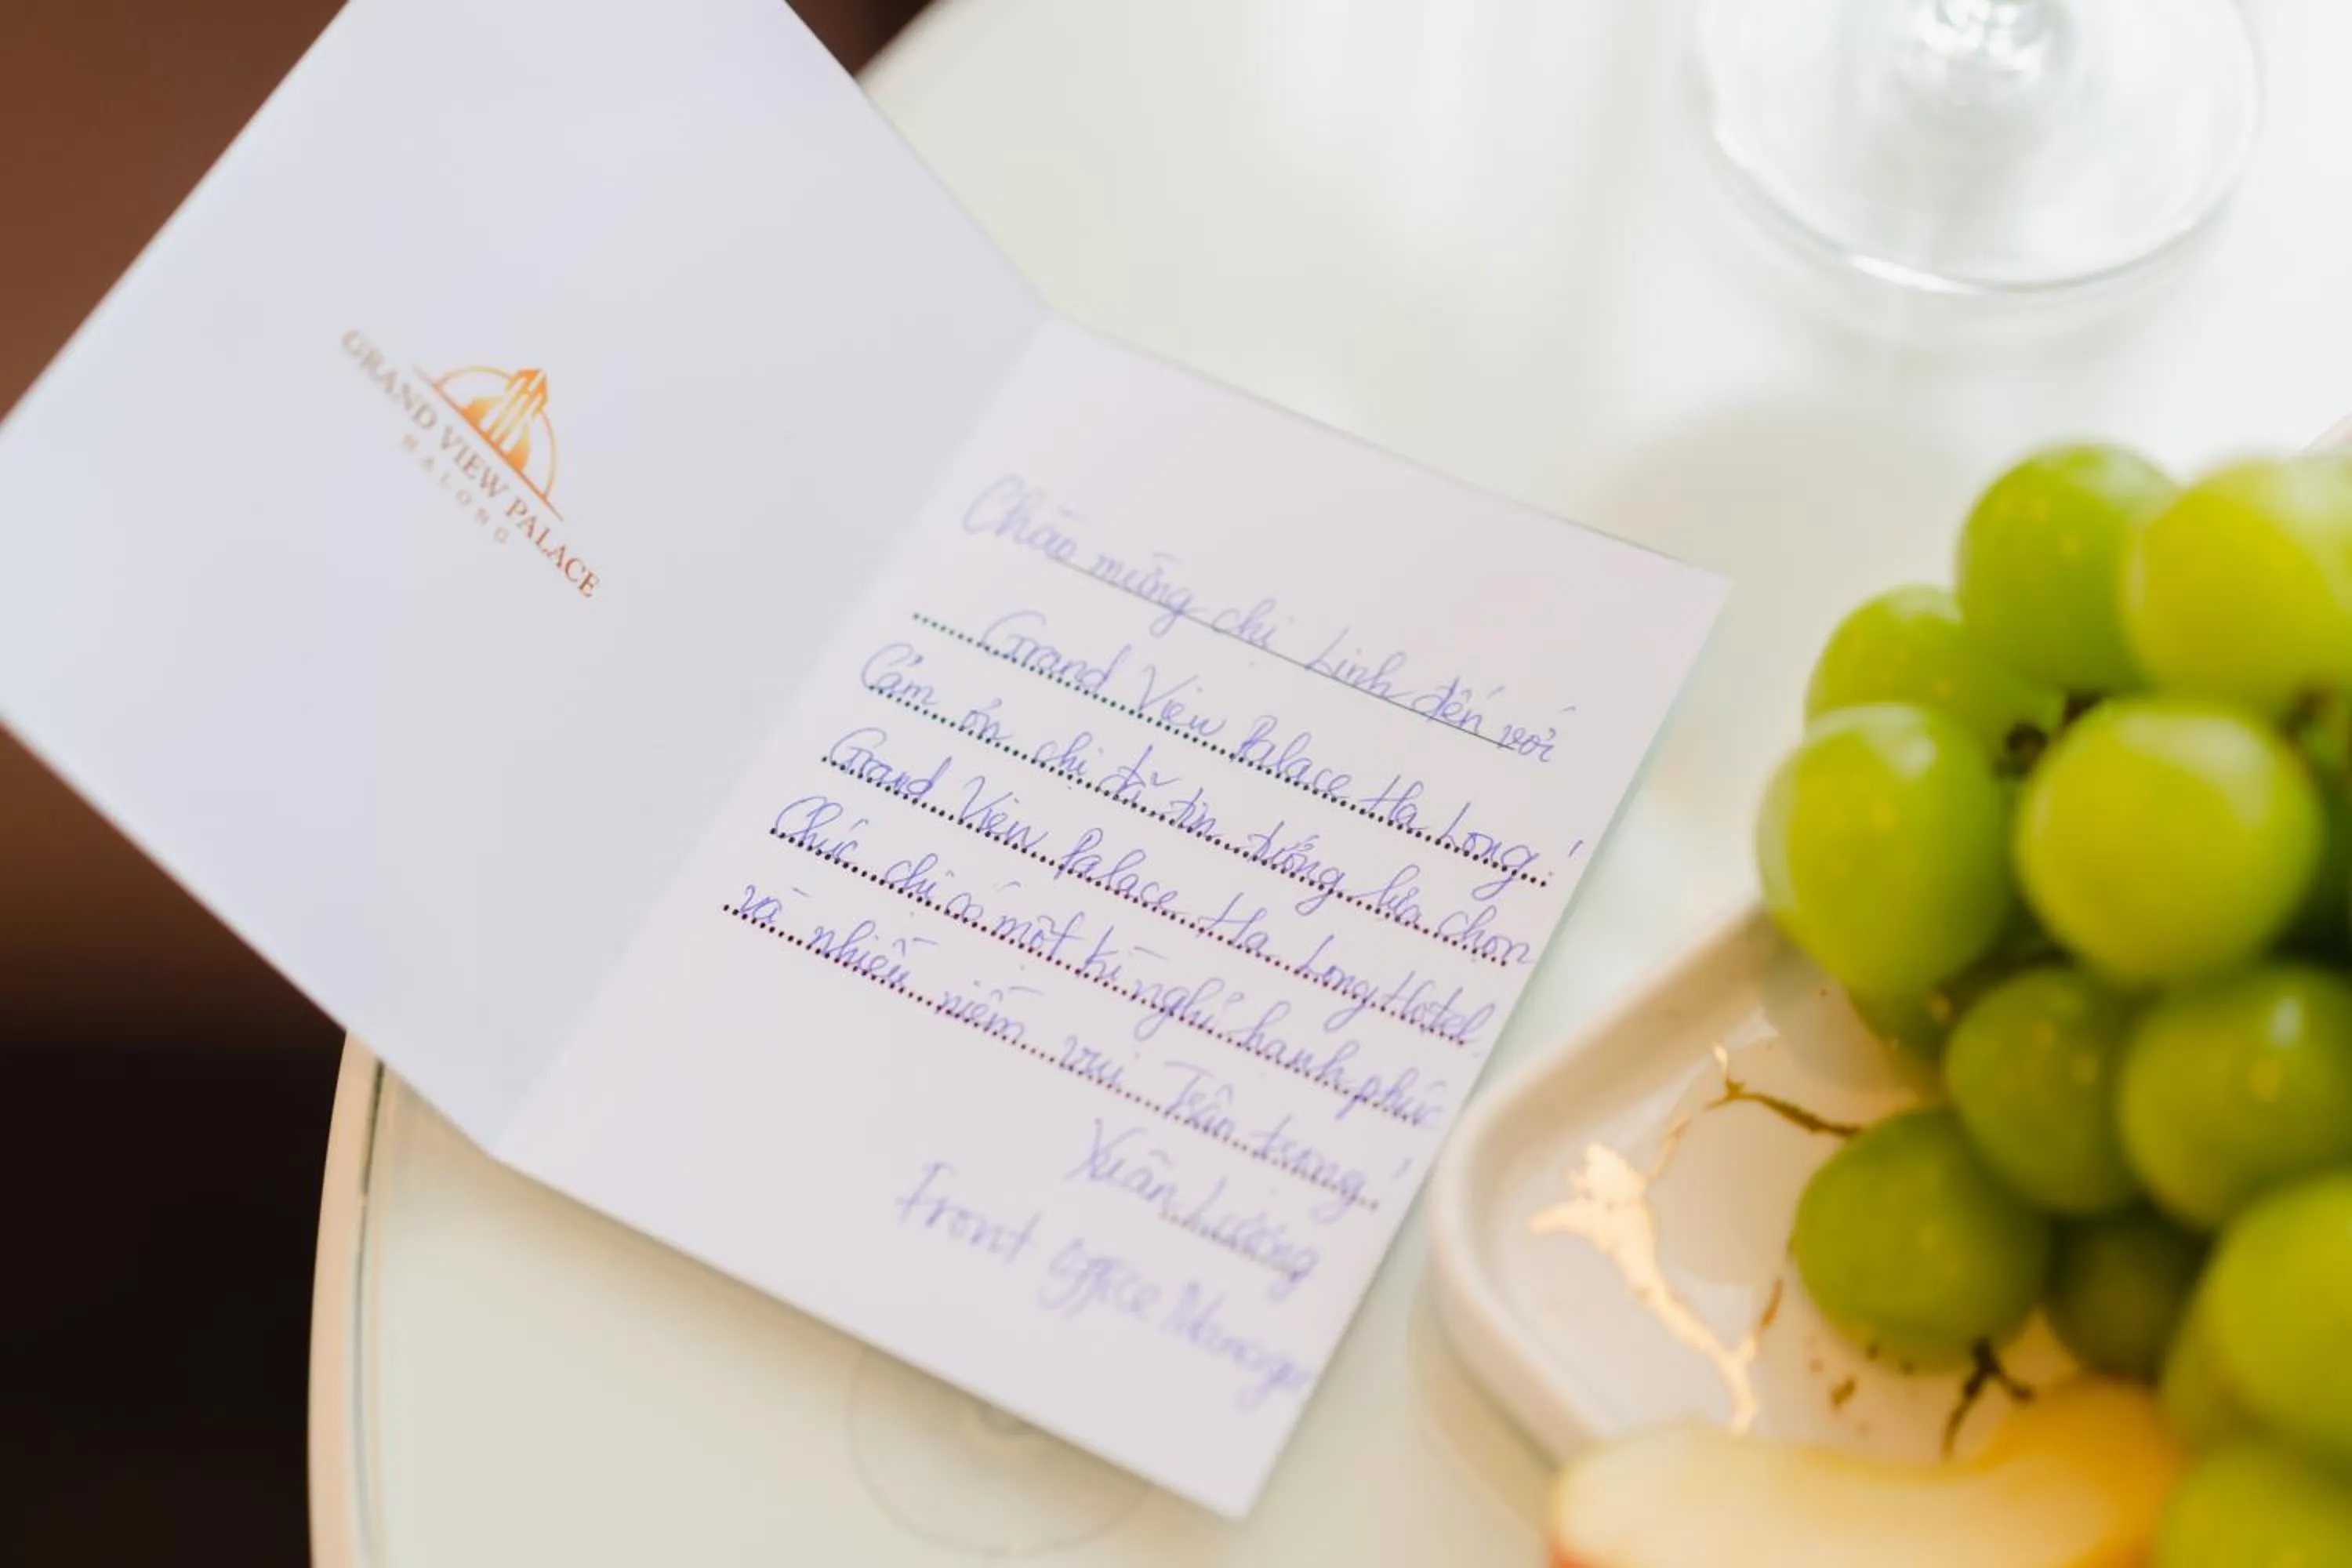 GRAND VIEW PALACE
HALONG
Chào mừng chị Linh đến với
Grand View Palace Ha Long!
Cảm ơn chị đã tin tưởng lựa chọn
Grand View Palace Ha Long Hotel.
Chúc chị có một kì nghỉ hạnh phúc
và nhiều niềm vui Trân trọng!
Xuân Lường
Front Office Manager